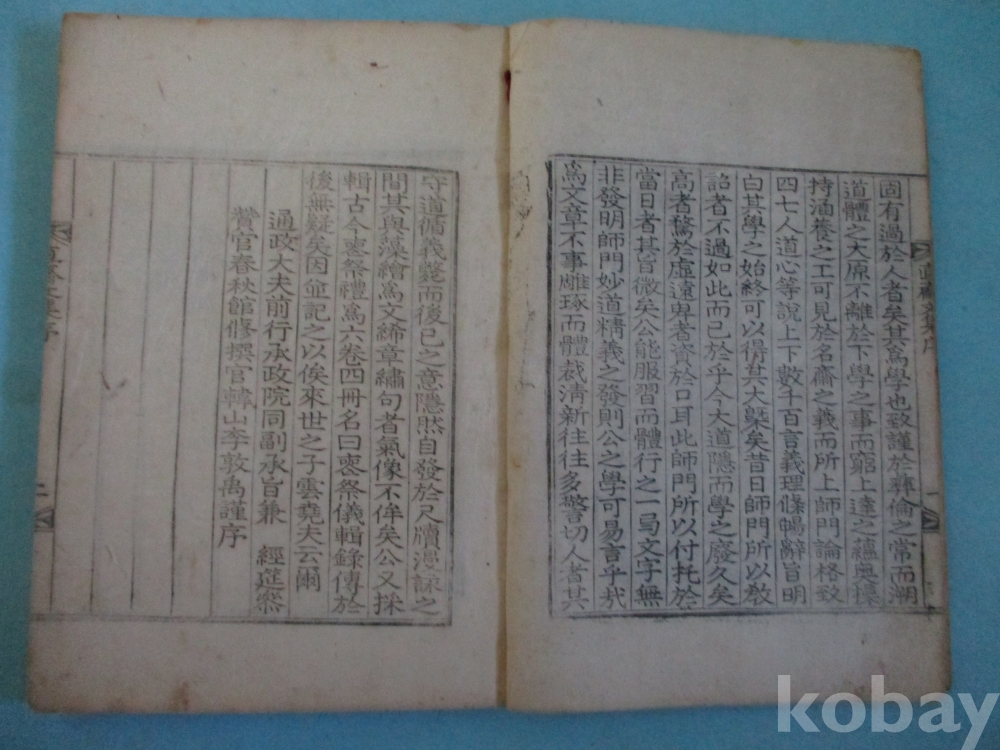 固有過於人者矣其爲學也致謹於彛倫之常而溯
道體之大原不離於下學之事而窮上達之蘊奧操
持涵養之工可見於名齋之義而所上師門論格致
四七人道心等說上下數千百言義理條暢辭旨明
白其學之始終可以得其大槩矣昔日師門所以敎
詔者不過如此而已於乎今大道隱而學之廢久矣
高者騖於虛遠卑者資於口耳此師門所以付托於
當日者其旨微矣公能服習而體行之一局文字無
非發明師門妙道精義之發則公之學可易言乎哉
爲文章不事雕琢而體裁淸新往往多警切人者其
守道循義斃而後已之意隱然自發於尺牘漫詠之
間其與藻繪爲文絺章繡句者氣像不侔矣公又採
輯古今喪祭禮爲六卷四冊名曰喪祭儀輯錄傳於
後無疑矣因並記之以俟來世之子雲堯夫云爾
通政大夫前行承政院同副承旨兼 經筵叅
贊官春秋館修撰官韓山李敦禹謹序
kobay